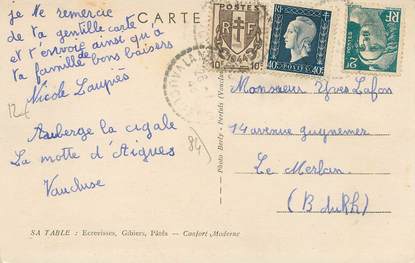 je te remercie
de ta gentille carte
et t'envoie ainsi qu'a
ta famille de bons baisers
Nicole Laupies
12
Auberge la cigale
La motte d'Aigues
Vaucluse
84
SA TABLE : Ecrevisses, Gibiers, Pâtés — Confort Moderne
CARTE
POSTES
RF
10c 10c
POSTES
40c 40c
RF
2F
Photo Bordy - Pertuis (Vaucluse)
Monsieur Yves Lafos
14 avenue guynemer
Le Merlan
(B du Rh)